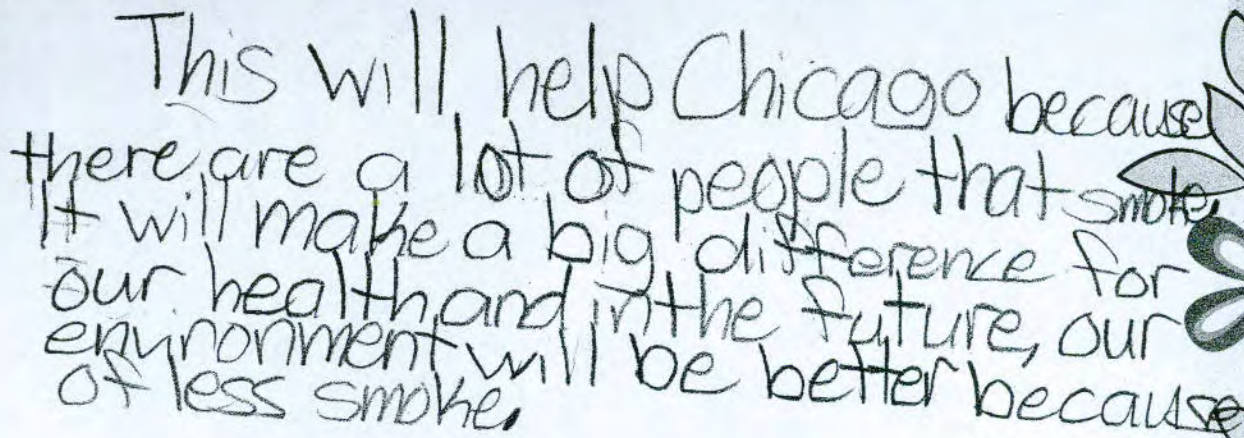 This will help Chicago because
there are a lot of people that smoke.
It will make a big difference for
our health and in the future, our
environment will be better because
of less smoke.